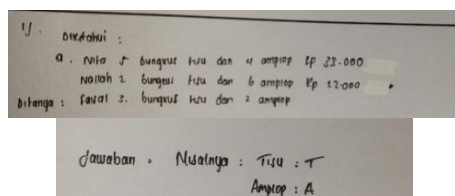 1). Diketahui :
a. Nita 5 bungkus tisu dan 4 amplop Rp 33.000
Nailah 2 bungkus tisu dan 6 amplop Rp 22.000
Ditanya : Faisal 3. bungkus tisu dan 2 amplop
Jawaban . Misalnya : Tisu : T
Amplop : A